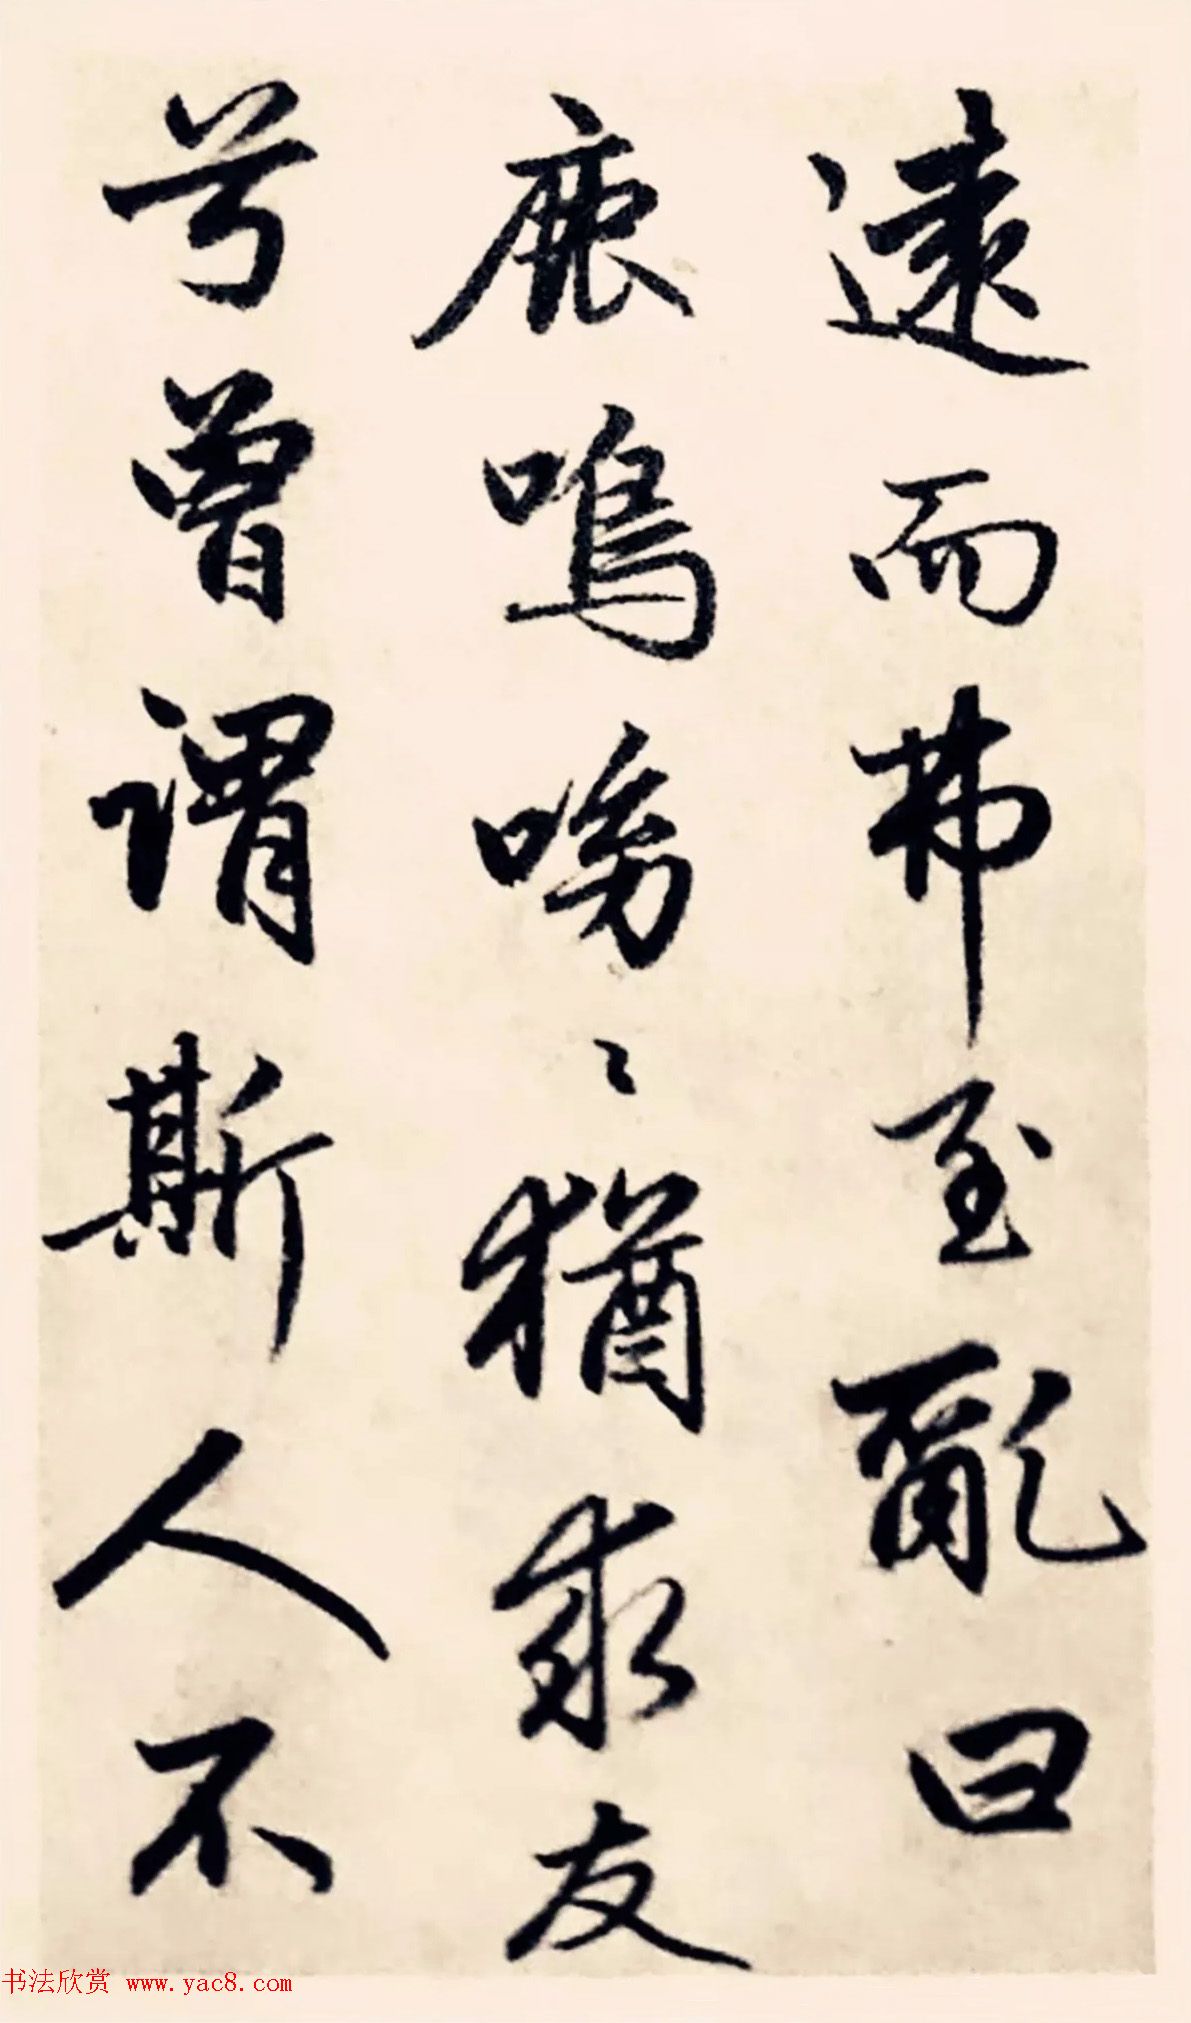 遠而弗至亂曰
鹿鳴嗷〻猶求友
兮曾謂斯人不
书法欣赏 www.yac8.com